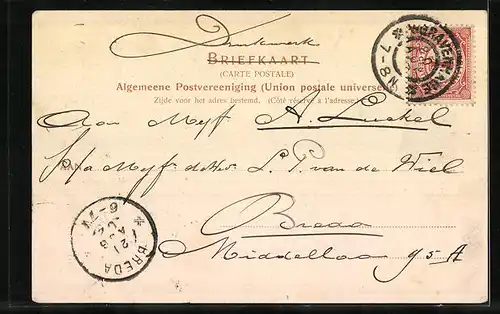 Drukwerk
BRIEFKAART
(CARTE POSTALE)
Algemeene Postvereeniging (Union postale universelle)
Zijde voor het adres bestemd. (Côté réservé à l'adresse
'S GRAVENHAGE
7-8 N
Aan Mejf. A. Luckel
AAN
p/a Mejf de Wed. L. P. van de Wiel
Breda
Middellaan 95 A
BREDA
21 AUG
6-7V